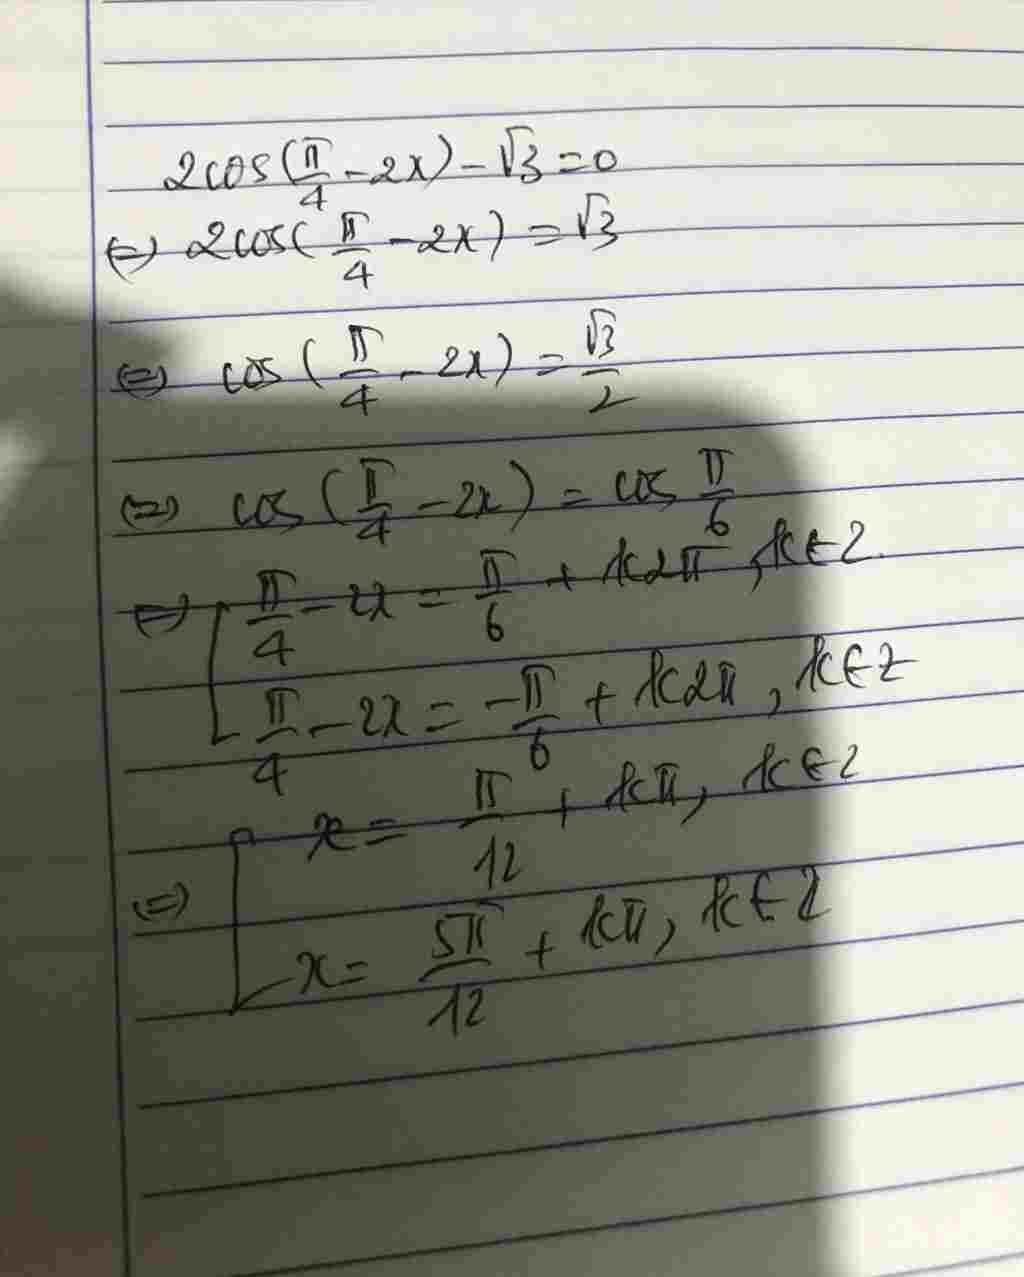 2cos(π/4 - 2x) - √3 = 0
⇔ 2cos(π/4 - 2x) = √3
⇔ cos(π/4 - 2x) = √3/2
⇔ cos(π/4 - 2x) = cos π/6
⇔ [ π/4 - 2x = π/6 + k2π, k∈Z
π/4 - 2x = -π/6 + k2π, k∈Z
⇔ [ x = π/12 + kπ, k∈Z
x = 5π/12 + kπ, k∈Z